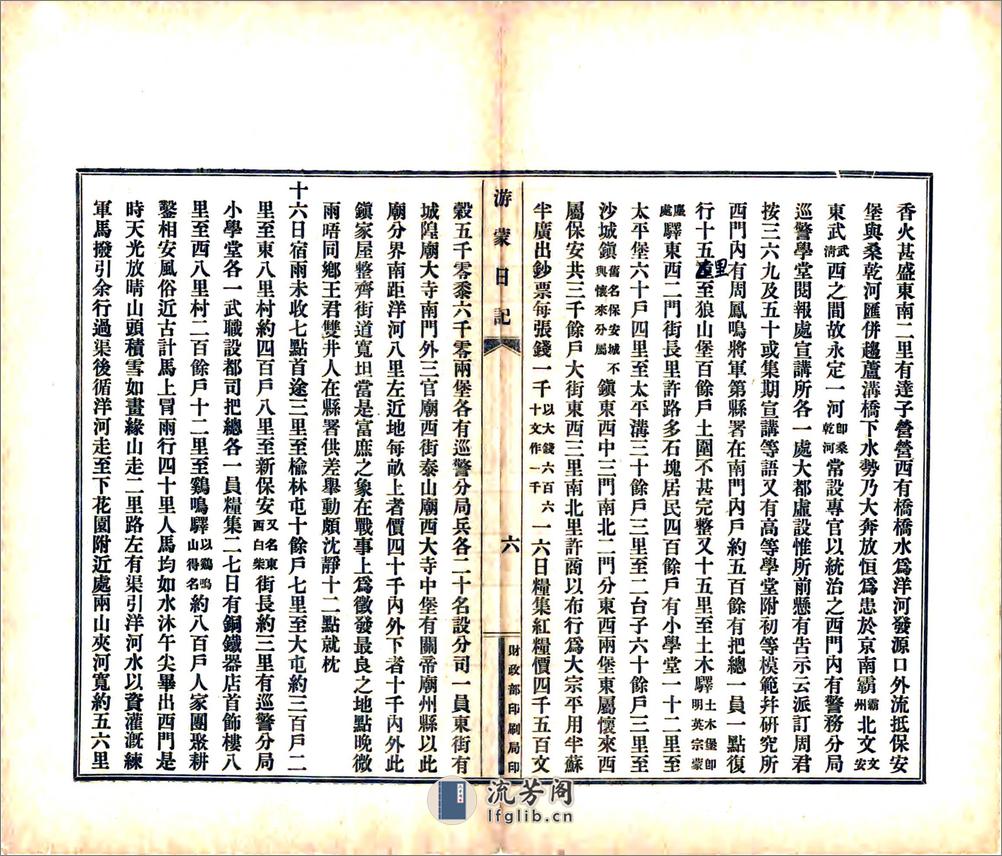 香火甚盛東南二里有達子營營西有橋橋水爲洋河發源口外流抵保安
堡與桑乾河匯併趨蘆溝橋下水勢乃大奔放恒爲患於京南霸霸州北文文安
東武武清西之間故永定一河卽桑乾河常設專官以統治之西門內有警務分局
巡警學堂閱報處宣講所各一處大都虛設惟所前懸有告示云派訂周君
按三六九及五十或集期宣講等語又有高等學堂附初等模範幷研究所
西門內有周鳳鳴將軍第縣署在南門內戶約五百餘有把總一員一點復
行十五里至狼山堡百餘戶土圍不甚完整又十五里至土木驛土木堡卽明英宗蒙
塵處驛東西二門街長里許路多石塊居民四百餘戶有小學堂一十二里至
太平堡六十戶四里至太平溝三十餘戶三里至二台子六十餘戶三里至
沙城鎮舊名保安城不與懷來分屬鎮東西中三門南北二門分東西兩堡東屬懷來西
屬保安共三千餘戶大街東西三里南北里許商以布行爲大宗平用半蘇
半廣出鈔票每張錢一千以大錢六百六十文作一千一六日糧集紅糧價四千五百文
游蒙日記
六
財政部印刷局印
穀五千零黍六千零兩堡各有巡警分局兵各二十名設分司一員東街有
城隍廟大寺南門外三官廟西街泰山廟西大寺中堡有關帝廟州縣以此
廟分界南距洋河八里左近地每畝上者價四十千內外下者十千內外此
鎮家屋整齊街道寬坦當是富庶之象在戰事上爲徵發最良之地點晚微
雨晤同鄉王君雙井人在縣署供差舉動頗沈靜十二點就枕
十六日宿雨未收七點首途三里至楡林屯十餘戶七里至大屯約三百戶二
里至東八里村約四百戶八里至新保安又名東西白柴街長約三里有巡警分局
小學堂各一武職設都司把總各一員糧集二七日有銅鐵器店首飾樓八
里至西八里村二百餘戶十二里至鷄鳴驛以鷄鳴山得名約八百戶人家團聚耕
鑿相安風俗近古計馬上冒雨行四十里人馬均如水沐午尖畢出西門是
時天光放晴山頭積雪如畫緣山走二里路左有渠引洋河水以資灌漑練
軍馬撥引余行過渠後循洋河走至下花園附近處兩山夾河寬約五六里
流芳阁
lfglib.cn